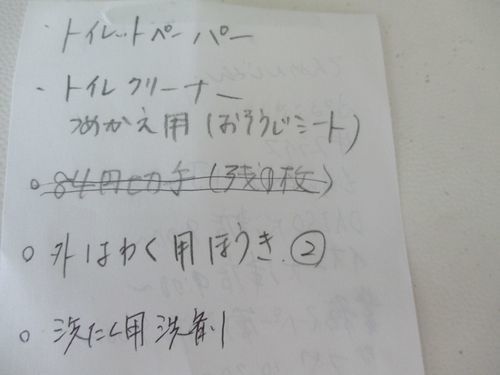 ・トイレットペーパー
・トイレクリーナー
つめかえ用(おそうじシート)
○84円切手(残0枚)
○外はわく用ほうき.②
○洗たく用洗剤